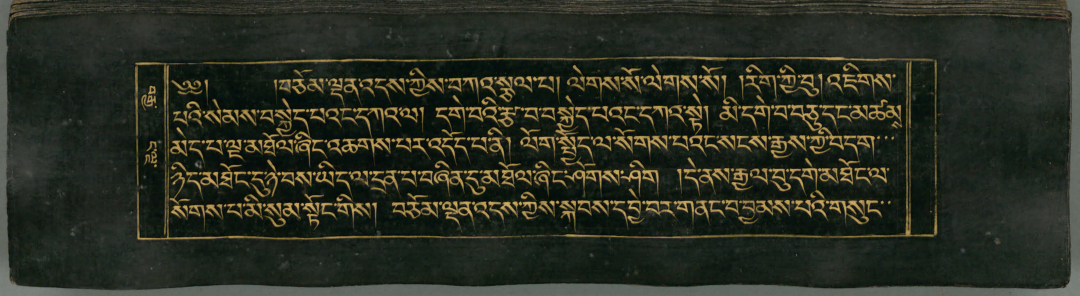 ༄༅། །བཅོམ་ལྡན་འདས་ཀྱིས་བཀའ་སྩལ་པ། ལེགས་སོ་ལེགས་སོ། །རིག་ཀྱི་བུ། འཇིགས་
པའི་སེམས་བསྐྱེད་པ་འང་དཀའ་ལ། དགེ་བའི་རྩ་བ་བསྐྱེད་པ་འང་དཀའ་སྟེ། མི་དགེ་བ་བཅུ་དང་མཚམས་
མེད་པ་ལྔ་མཐོལ་ཞིང་འཆགས་པར་འདོད་པ་ནི། ལོག་སྤྱོད་ལ་སོགས་པ་འང་སངས་རྒྱས་ཀྱི་བདག་
ཉིད་མཐོང་དུ་ཉེ་བས་ཡིད་ལ་དྲན་པ་བཞིན་དུ་མཐོལ་ཞིང་ཤོགས་ཤིག །དེ་ནས་རྒྱལ་བུ་དགེ་མཐོང་ལ་
སོགས་པ་མི་སུམ་སྟོང་གིས། བཅོམ་ལྡན་འདས་ཀྱིས་སྐབས་དབྱེ་བར་གནང་བ་བྱམས་པའི་གསུང་